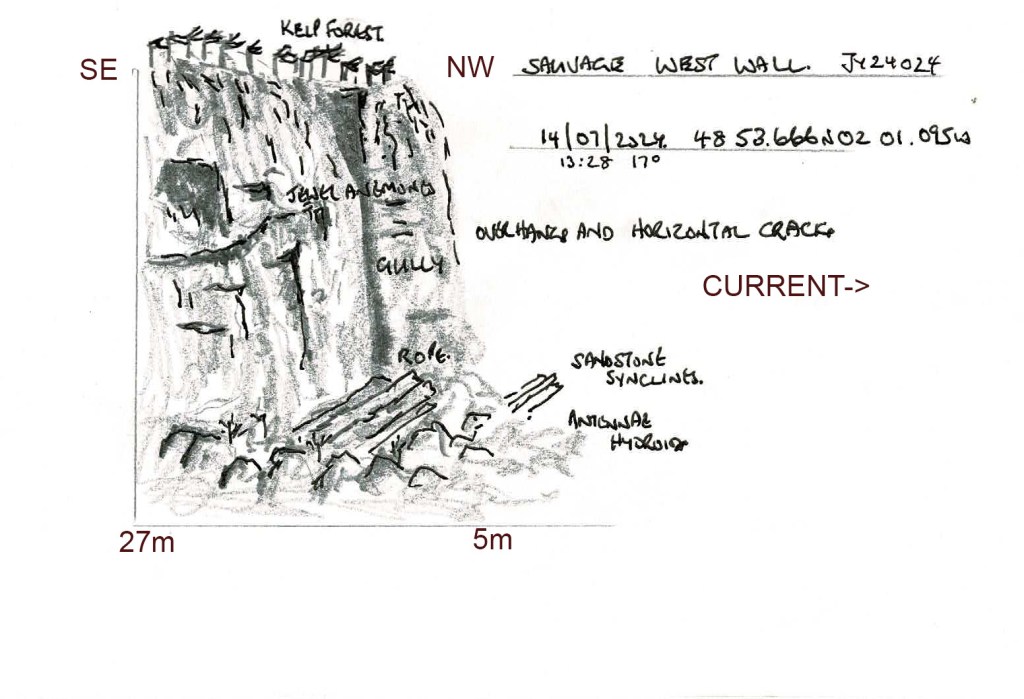 KELP FOREST.
SE
NW
SAUVAGE WEST WALL. JY24024
14/07/2024. 48 53.666N 02 01.095W
13:28 17°
JEWEL ANEMONES
OVERHANGS AND HORIZONTAL CRACKS
GULLY
CURRENT->
ROPE.
SANDSTONE
SYNCLINES.
ANTENNAE
HYDROIDS
27m
5m